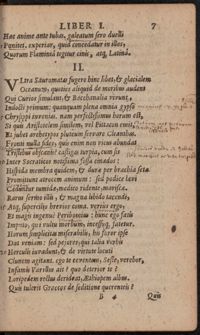 LIBER I. 7
Hæc animo ante tubas, galeatum sero duelli
Pœnitet, experiar, quid concedatur in illos,
Quorum Flaminiâ tegitur cinis, atq; Latinâ.
II.
VLtra Sauromatas fugere hinc libet, & glacialem
Oceanum, quoties aliquid de moribus audent
Qui Curios simulant, & Bacchanalia vivunt,
Indocti primùm: quanquam plena omnia gypso
Chrysippi invenias. nam perfectissimus horum est,
Si quis Aristotelem similem, vel Pittacon emit,
Et iubet archetypos pluteum servare Cleanthas.
Fronti nulla fides; quis enim non vicus abundat
Tristibus obscœnis? castigas turpia, cum sis
Inter Socraticos notissima fossa cinædos:
Hispida membra quidem, & duræ per brachia setæ
Promittunt atrocem animum: sed podice lævi
Cæduntur tumidæ, medico ridente, mariscæ.
Rarus sermo illis, & magna libido tacendi,
Atq; supercilio brevior coma. veriùs ergo,
Et magis ingenuè Peribomius: hunc ego fatis
Imputo, qui vultu morbum, incessuq; fatetur.
Horum simplicitas miserabilis, his furor ipse
Dat veniam: sed pejores, qui talia verbis
Herculis invadunt, & de virtute locuti
Clunem agitant. ego te ceventem, Sexte, verebor,
Infamis Varillus ait? quo deterior te?
Loripedem rectus derideat, Æthiopem albus.
Quis tulerit Gracchos de seditione querentes?
B 4 Quis